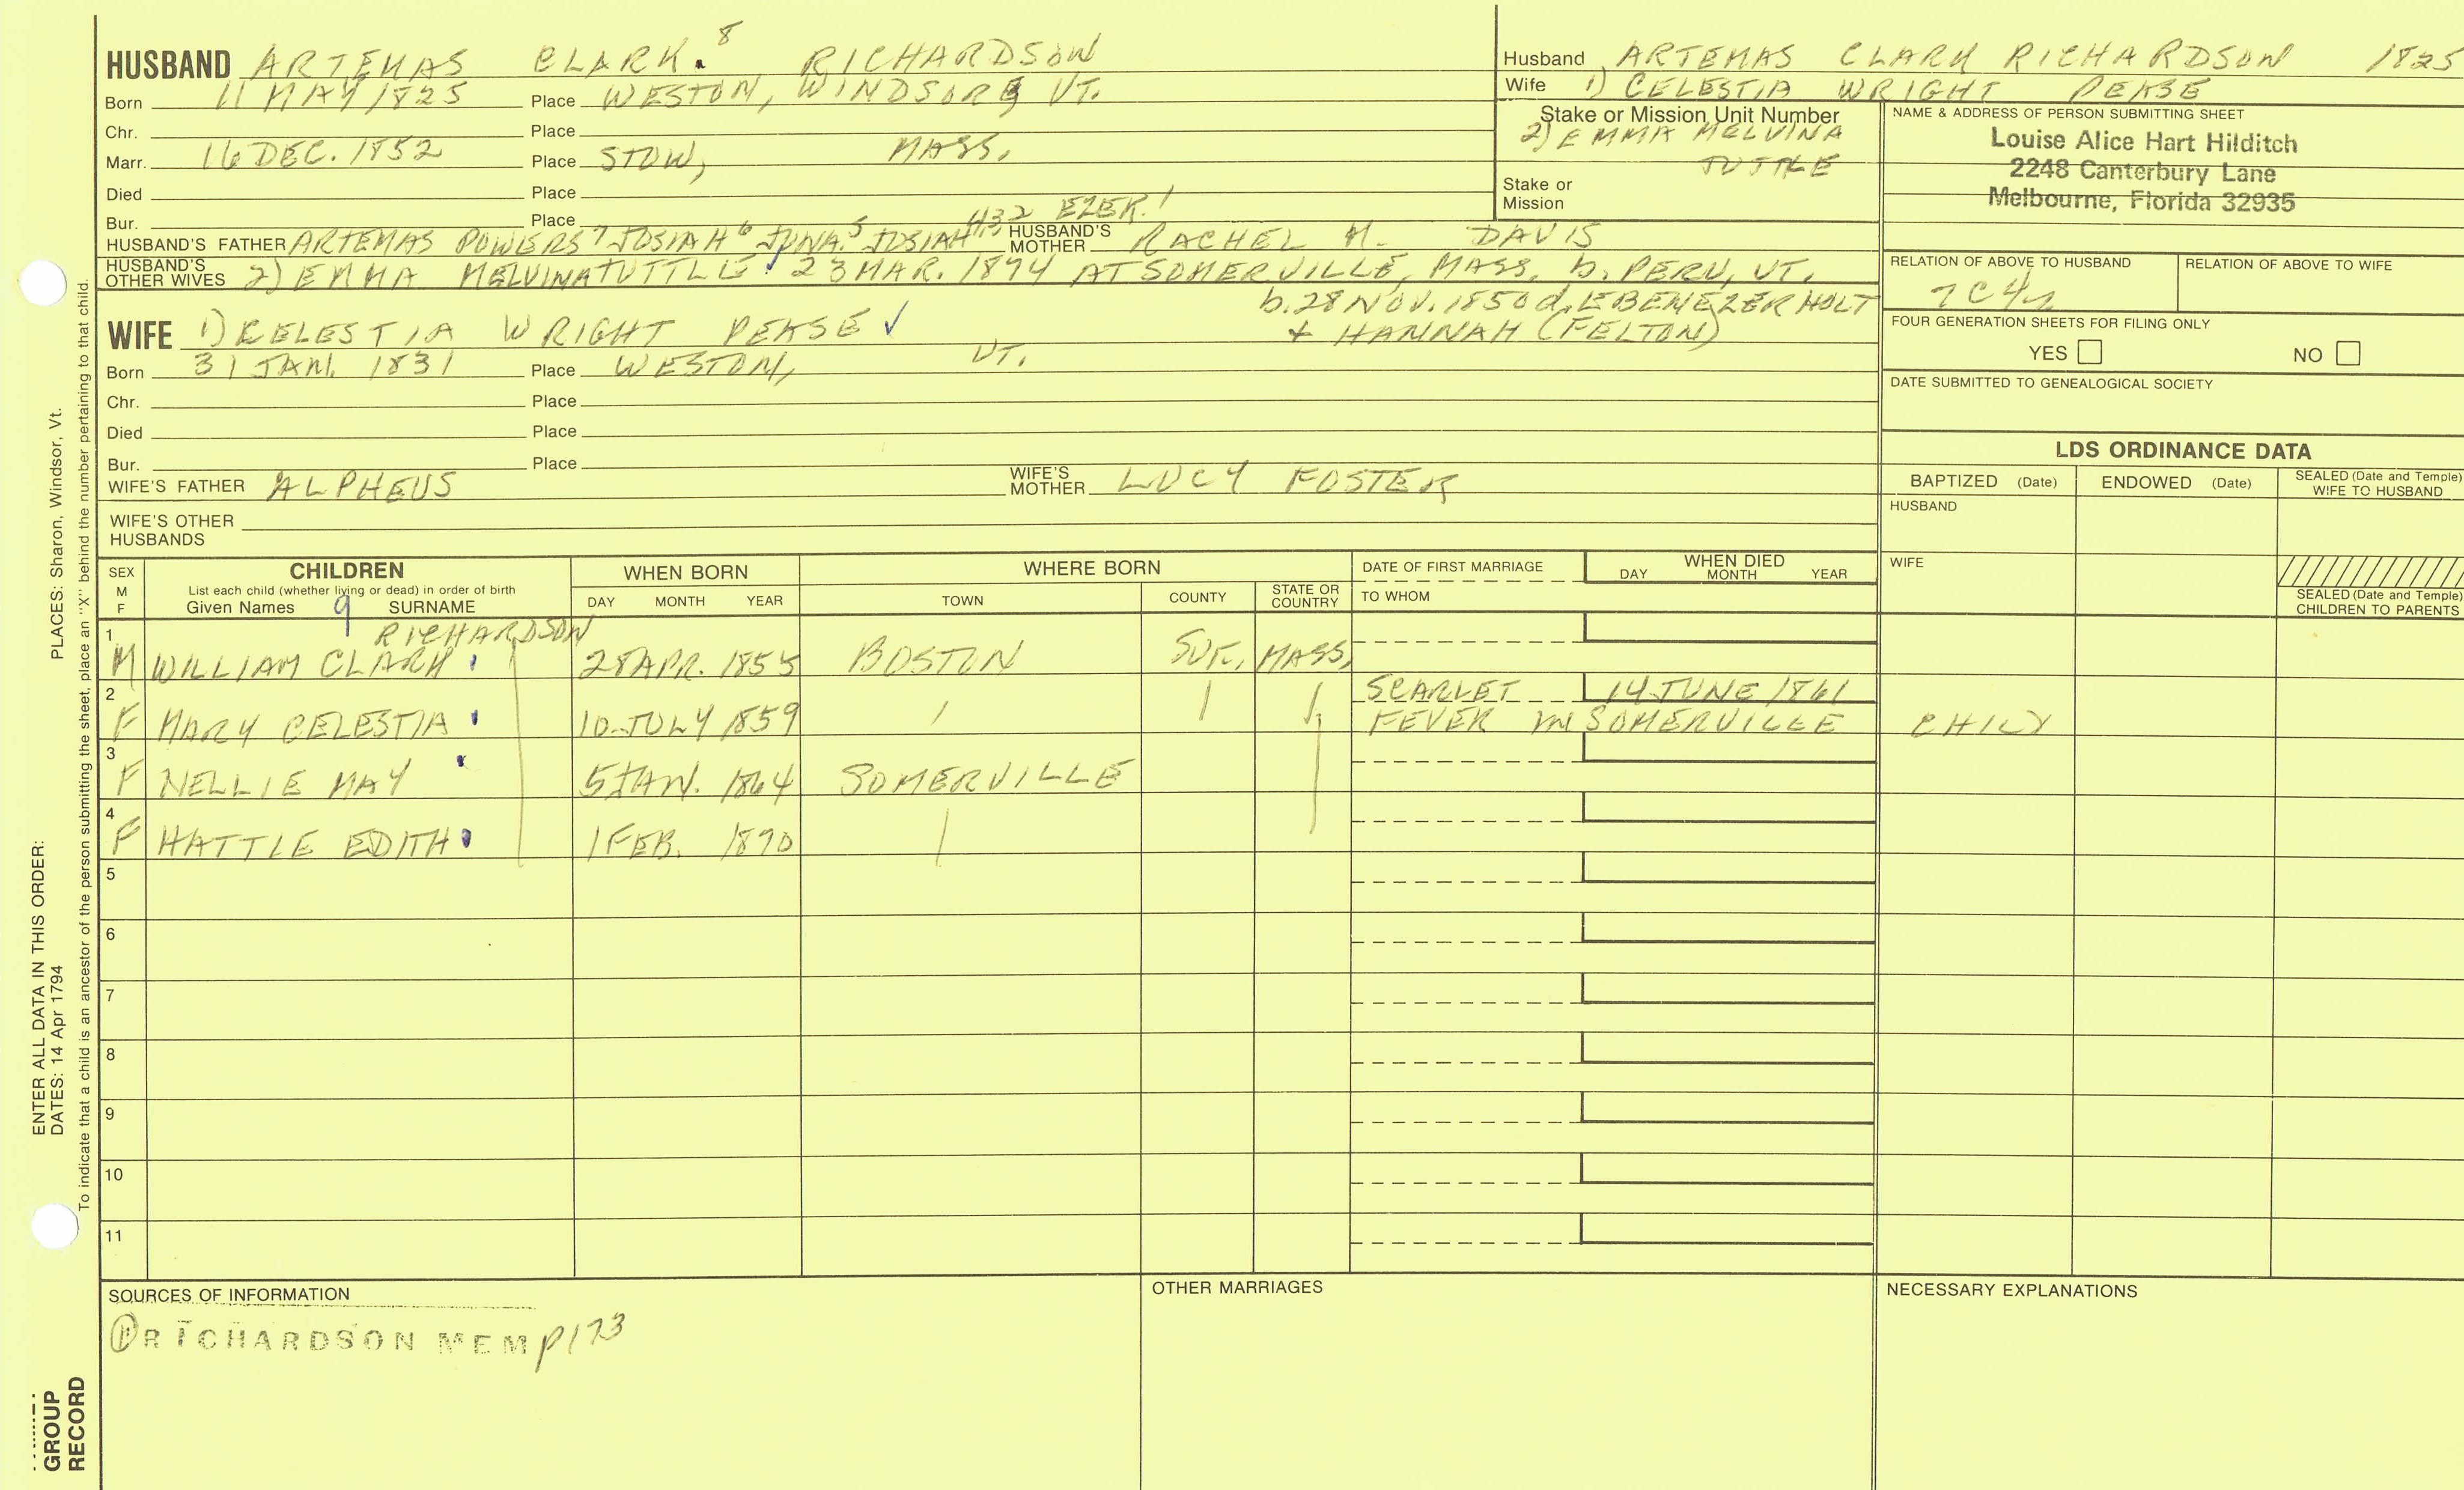 HUSBAND ARTEMAS CLARK. 8 RICHARDSON
Born 11 MAY 1825 Place WESTON, WINDSOR VT.
Chr. Place
Marr. 16 DEC. 1852 Place STOW, MASS.
Died Place
Bur. Place
HUSBAND'S FATHER ARTEMAS POWERS 7 JOSIAH 6 JONA. 5 JOSIAH 4,3,2 EZEK. 1 HUSBAND'S MOTHER RACHEL M. DAVIS
HUSBAND'S OTHER WIVES 2) EMMA MELVINA TUTTLE 23 MAR. 1874 AT SOMERVILLE, MASS, b. PERU, VT.
b. 28 NOV. 1850 d. EBENEZER HOLT
+ HANNAH (FELTON)
WIFE 1) CELESTIA WRIGHT PEASE ✓
Born 31 JAN. 1831 Place WESTON, VT.
Chr. Place
Died Place
Bur. Place
WIFE'S FATHER ALPHEUS WIFE'S MOTHER LUCY FOSTER
WIFE'S OTHER HUSBANDS
Husband ARTEMAS CLARK RICHARDSON 1825
Wife 1) CELESTIA WRIGHT PEASE
Stake or Mission Unit Number
2) EMMA MELVINA
TUTTLE
Stake or
Mission
NAME & ADDRESS OF PERSON SUBMITTING SHEET
Louise Alice Hart Hilditch
2248 Canterbury Lane
Melbourne, Florida 32935
RELATION OF ABOVE TO HUSBAND RELATION OF ABOVE TO WIFE
7C4
FOUR GENERATION SHEETS FOR FILING ONLY
YES NO
DATE SUBMITTED TO GENEALOGICAL SOCIETY
LDS ORDINANCE DATA
BAPTIZED (Date) ENDOWED (Date) SEALED (Date and Temple) WIFE TO HUSBAND
HUSBAND
WIFE
SEALED (Date and Temple) CHILDREN TO PARENTS
SEX M F
CHILDREN
List each child (whether living or dead) in order of birth
Given Names 9 SURNAME
WHEN BORN
DAY MONTH YEAR
WHERE BORN
TOWN COUNTY STATE OR COUNTRY
DATE OF FIRST MARRIAGE
TO WHOM
WHEN DIED
DAY MONTH YEAR
RICHARDSON
1 M WILLIAM CLARK 28 APR. 1855 BOSTON SUF. MASS.
2 F MARY CELESTIA 10 JULY 1859 SCARLET 14 JUNE 1861
FEVER IN SOMERVILLE CHILD
3 F NELLIE MAY 5 JAN. 1864 SOMERVILLE
4 F HATTIE EDITH 1 FEB. 1870
5
6
7
8
9
10
11
SOURCES OF INFORMATION
① RICHARDSON MEM p173
OTHER MARRIAGES
NECESSARY EXPLANATIONS
PLACES: Sharon, Windsor, Vt.
To indicate that a child is an ancestor of the person submitting the sheet, place an "X" behind the number pertaining to that child.
ENTER ALL DATA IN THIS ORDER:
DATES: 14 Apr 1794
GROUP
RECORD